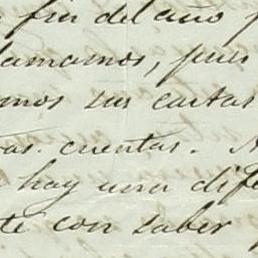 fin del año
lamamos, pues
mos sus cartas
as cuentas. A
hay una dife
te con saber